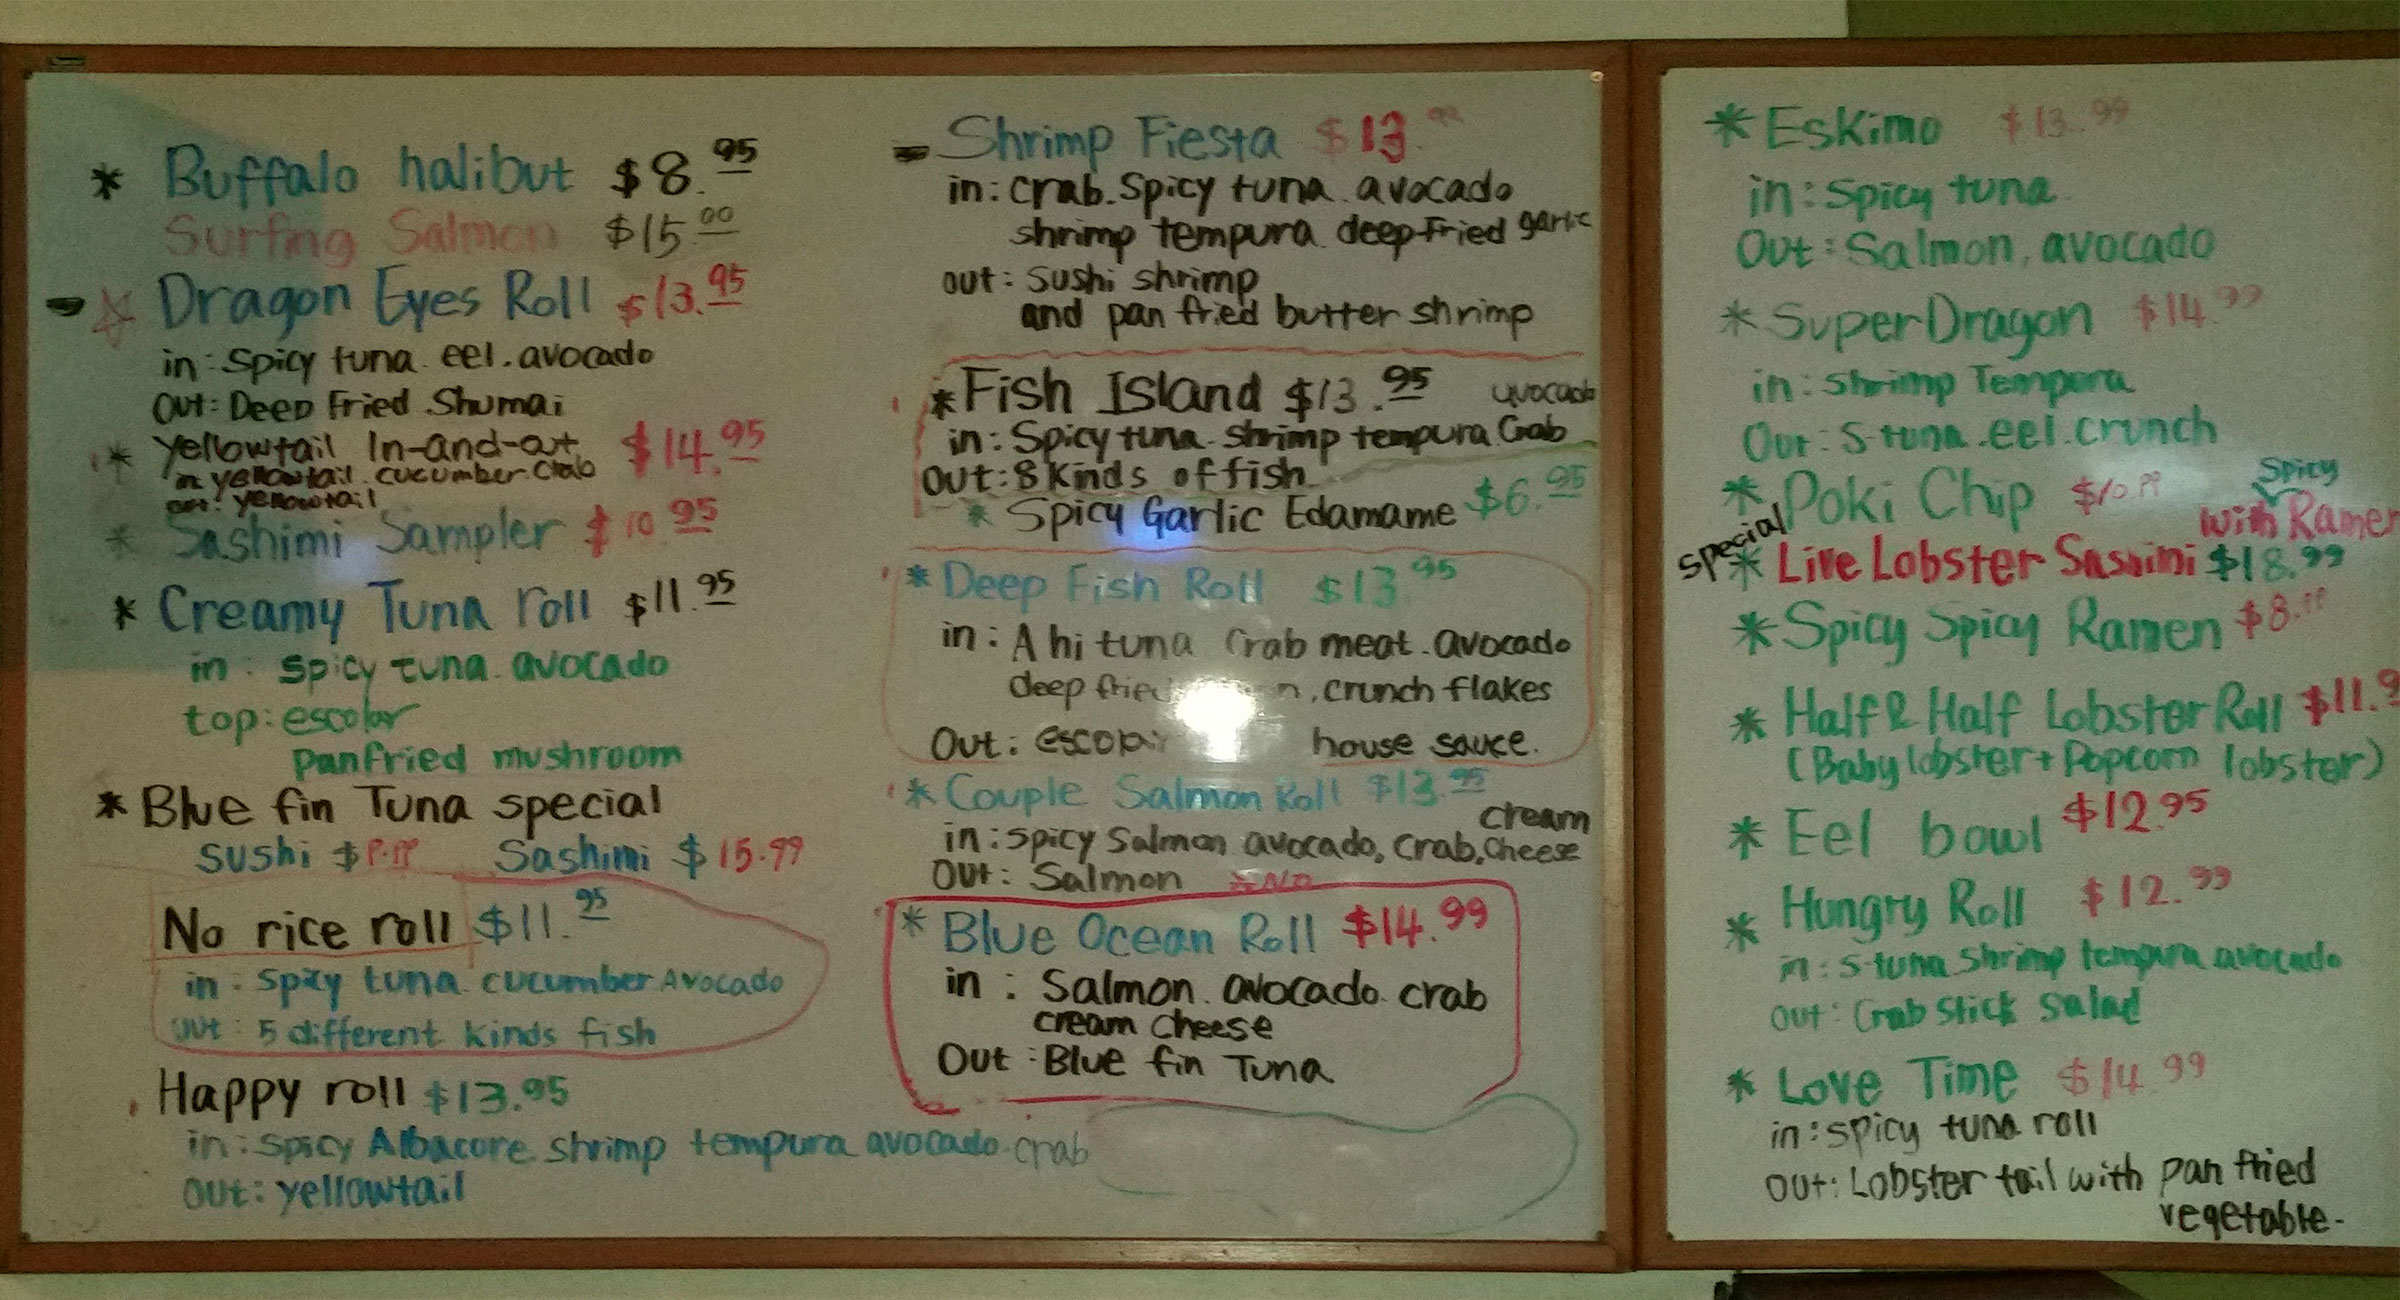 * Buffalo halibut $8.95
Surfing Salmon $15.00
Dragon Eyes Roll $13.95
in: Spicy tuna. eel. avocado
Out: Deep Fried Shumai
* Yellowtail In-and-out $14.95
in yellowtail. cucumber. Crab
out: yellowtail
* Sashimi Sampler $10.95
* Creamy Tuna roll $11.95
in: spicy tuna. avocado
top: escolar
Pan fried mushroom
* Blue fin Tuna special
Sushi $ Sashimi $15.99
No rice roll $11.95
in: Spicy tuna. cucumber Avocado
out: 5 different kinds fish
Happy roll $13.95
in: spicy Albacore shrimp tempura avocado. crab
out: yellowtail
Shrimp Fiesta $13.99
in: crab. Spicy tuna. avocado
shrimp tempura. deep fried garlic
out: Sushi shrimp
and pan fried butter shrimp
* Fish Island $13.95
avocado
in: Spicy tuna. shrimp tempura Crab
Out: 8 kinds of fish
* Spicy Garlic Edamame $6.95
* Deep Fish Roll $13.95
in: Ahi tuna Crab meat. avocado
deep fried , crunch flakes
Out: escolar house sauce.
* Couple Salmon Roll $13.95
cream
in: spicy Salmon avocado, Crab, Cheese
Out: Salmon
* Blue Ocean Roll $14.99
in: Salmon. avocado. crab
cream cheese
Out: Blue fin Tuna
* Eskimo $13.99
in: Spicy tuna
Out: Salmon, avocado
* Super Dragon $14.99
in: Shrimp Tempora
Out: S-tuna. eel. crunch
* Poki Chip $10.99
Spicy
with Ramen
special
* Live Lobster Sashimi $18.99
* Spicy Spicy Ramen $8.99
* Half & Half Lobster Roll $11.9
(Baby lobster + Popcorn lobster)
* Eel bowl $12.95
* Hungry Roll $12.99
in: S-tuna shrimp tempura avocado
out: Crab stick salad
* Love Time $14.99
in: spicy tuna roll
out: Lobster tail with pan fried
vegetable.